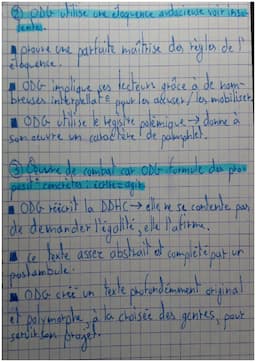 ② ODG utilise une éloquence audacieuse voir inso-
lente.
▪ prouve une parfaite maîtrise des règles de l'
éloquence.
▪ ODG implique ses lecteurs grâce à de nom-
breuses interpellat° pour les accuser / les mobiliser
▪ ODG utilise le registre polémique → donne à
son œuvre un caractère de pamphlet.
③ Œuvre de combat car ODG formule des pro
posit° concrètes : écrire = agir
▪ ODG réécrit la DDHC → elle ne se contente pas
de demander l'égalité, elle l'affirme.
▪ Ce texte assez abstrait et complété par un
postambule.
▪ ODG crée un texte profondément original
et polymorphe, à la croisée des genres, pour
servir son projet.